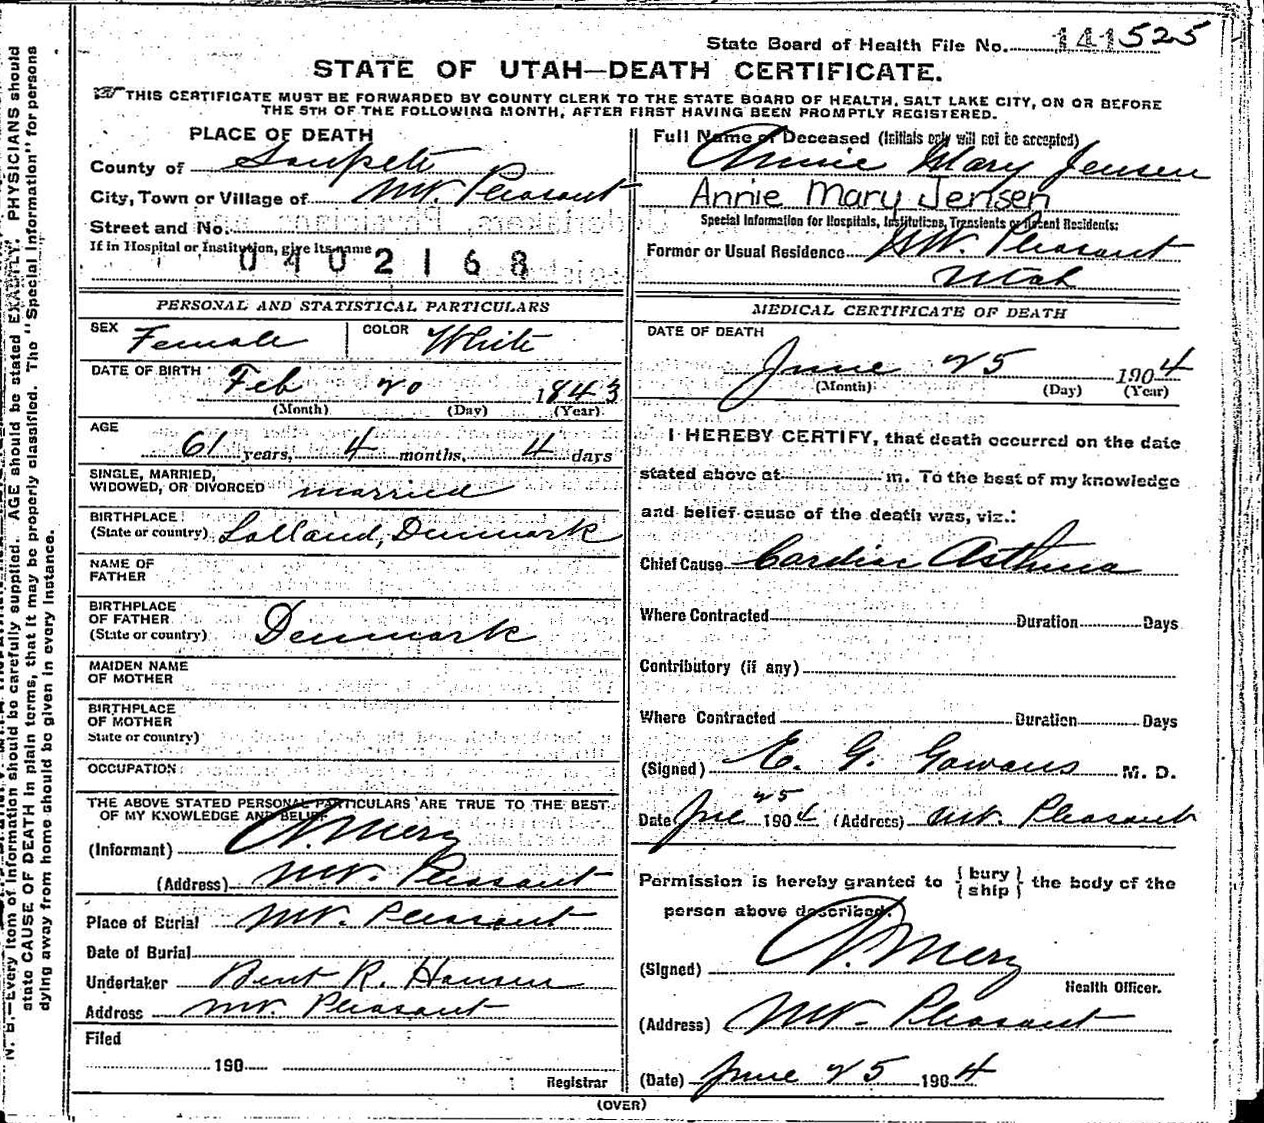 State Board of Health File No. 141525
STATE OF UTAH—DEATH CERTIFICATE.
THIS CERTIFICATE MUST BE FORWARDED BY COUNTY CLERK TO THE STATE BOARD OF HEALTH, SALT LAKE CITY, ON OR BEFORE
THE 5TH OF THE FOLLOWING MONTH, AFTER FIRST HAVING BEEN PROMPTLY REGISTERED.
PLACE OF DEATH
County of Sanpete
City, Town or Village of Mt. Pleasant
Street and No.
If in Hospital or Institution, give its name
0402168
Full Name of Deceased (Initials only will not be accepted)
Annie Mary Jensen
Annie Mary Jensen
Special Information for Hospitals, Institutions, Transients or Recent Residents:
Former or Usual Residence Mt. Pleasant
Utah
PERSONAL AND STATISTICAL PARTICULARS
SEX Female COLOR White
DATE OF BIRTH Feb 20 1843
(Month) (Day) (Year)
AGE
61 years, 4 months, 4 days
SINGLE, MARRIED,
WIDOWED, OR DIVORCED married
BIRTHPLACE
(State or country) Lolland, Denmark
NAME OF
FATHER
BIRTHPLACE
OF FATHER
(State or country) Denmark
MAIDEN NAME
OF MOTHER
BIRTHPLACE
OF MOTHER
State or country)
OCCUPATION
THE ABOVE STATED PERSONAL PARTICULARS ARE TRUE TO THE BEST
OF MY KNOWLEDGE AND BELIEF
(Informant) A. Merz
(Address) Mt. Pleasant
Place of Burial Mt. Pleasant
Date of Burial
Undertaker Bent R. Hansen
Address Mt. Pleasant
Filed
190
Registrar
MEDICAL CERTIFICATE OF DEATH
DATE OF DEATH
June 25 1904
(Month) (Day) (Year)
I HEREBY CERTIFY, that death occurred on the date
stated above at m. To the best of my knowledge
and belief cause of the death was, viz.:
Chief Cause Cardiac Asthma
Where Contracted Duration Days
Contributory (if any)
Where Contracted Duration Days
(Signed) E. G. Gowans M. D.
Date June 25 1904 (Address) Mt. Pleasant
Permission is hereby granted to { bury ship } the body of the
person above described.
(Signed) A. Merz
Health Officer.
(Address) Mt. Pleasant
(Date) June 25 1904
(OVER)
N. B.—Every item of information should be carefully supplied. AGE should be stated EXACTLY. PHYSICIANS should
state CAUSE OF DEATH in plain terms, that it may be properly classified. The "Special Information" for persons
dying away from home should be given in every instance.